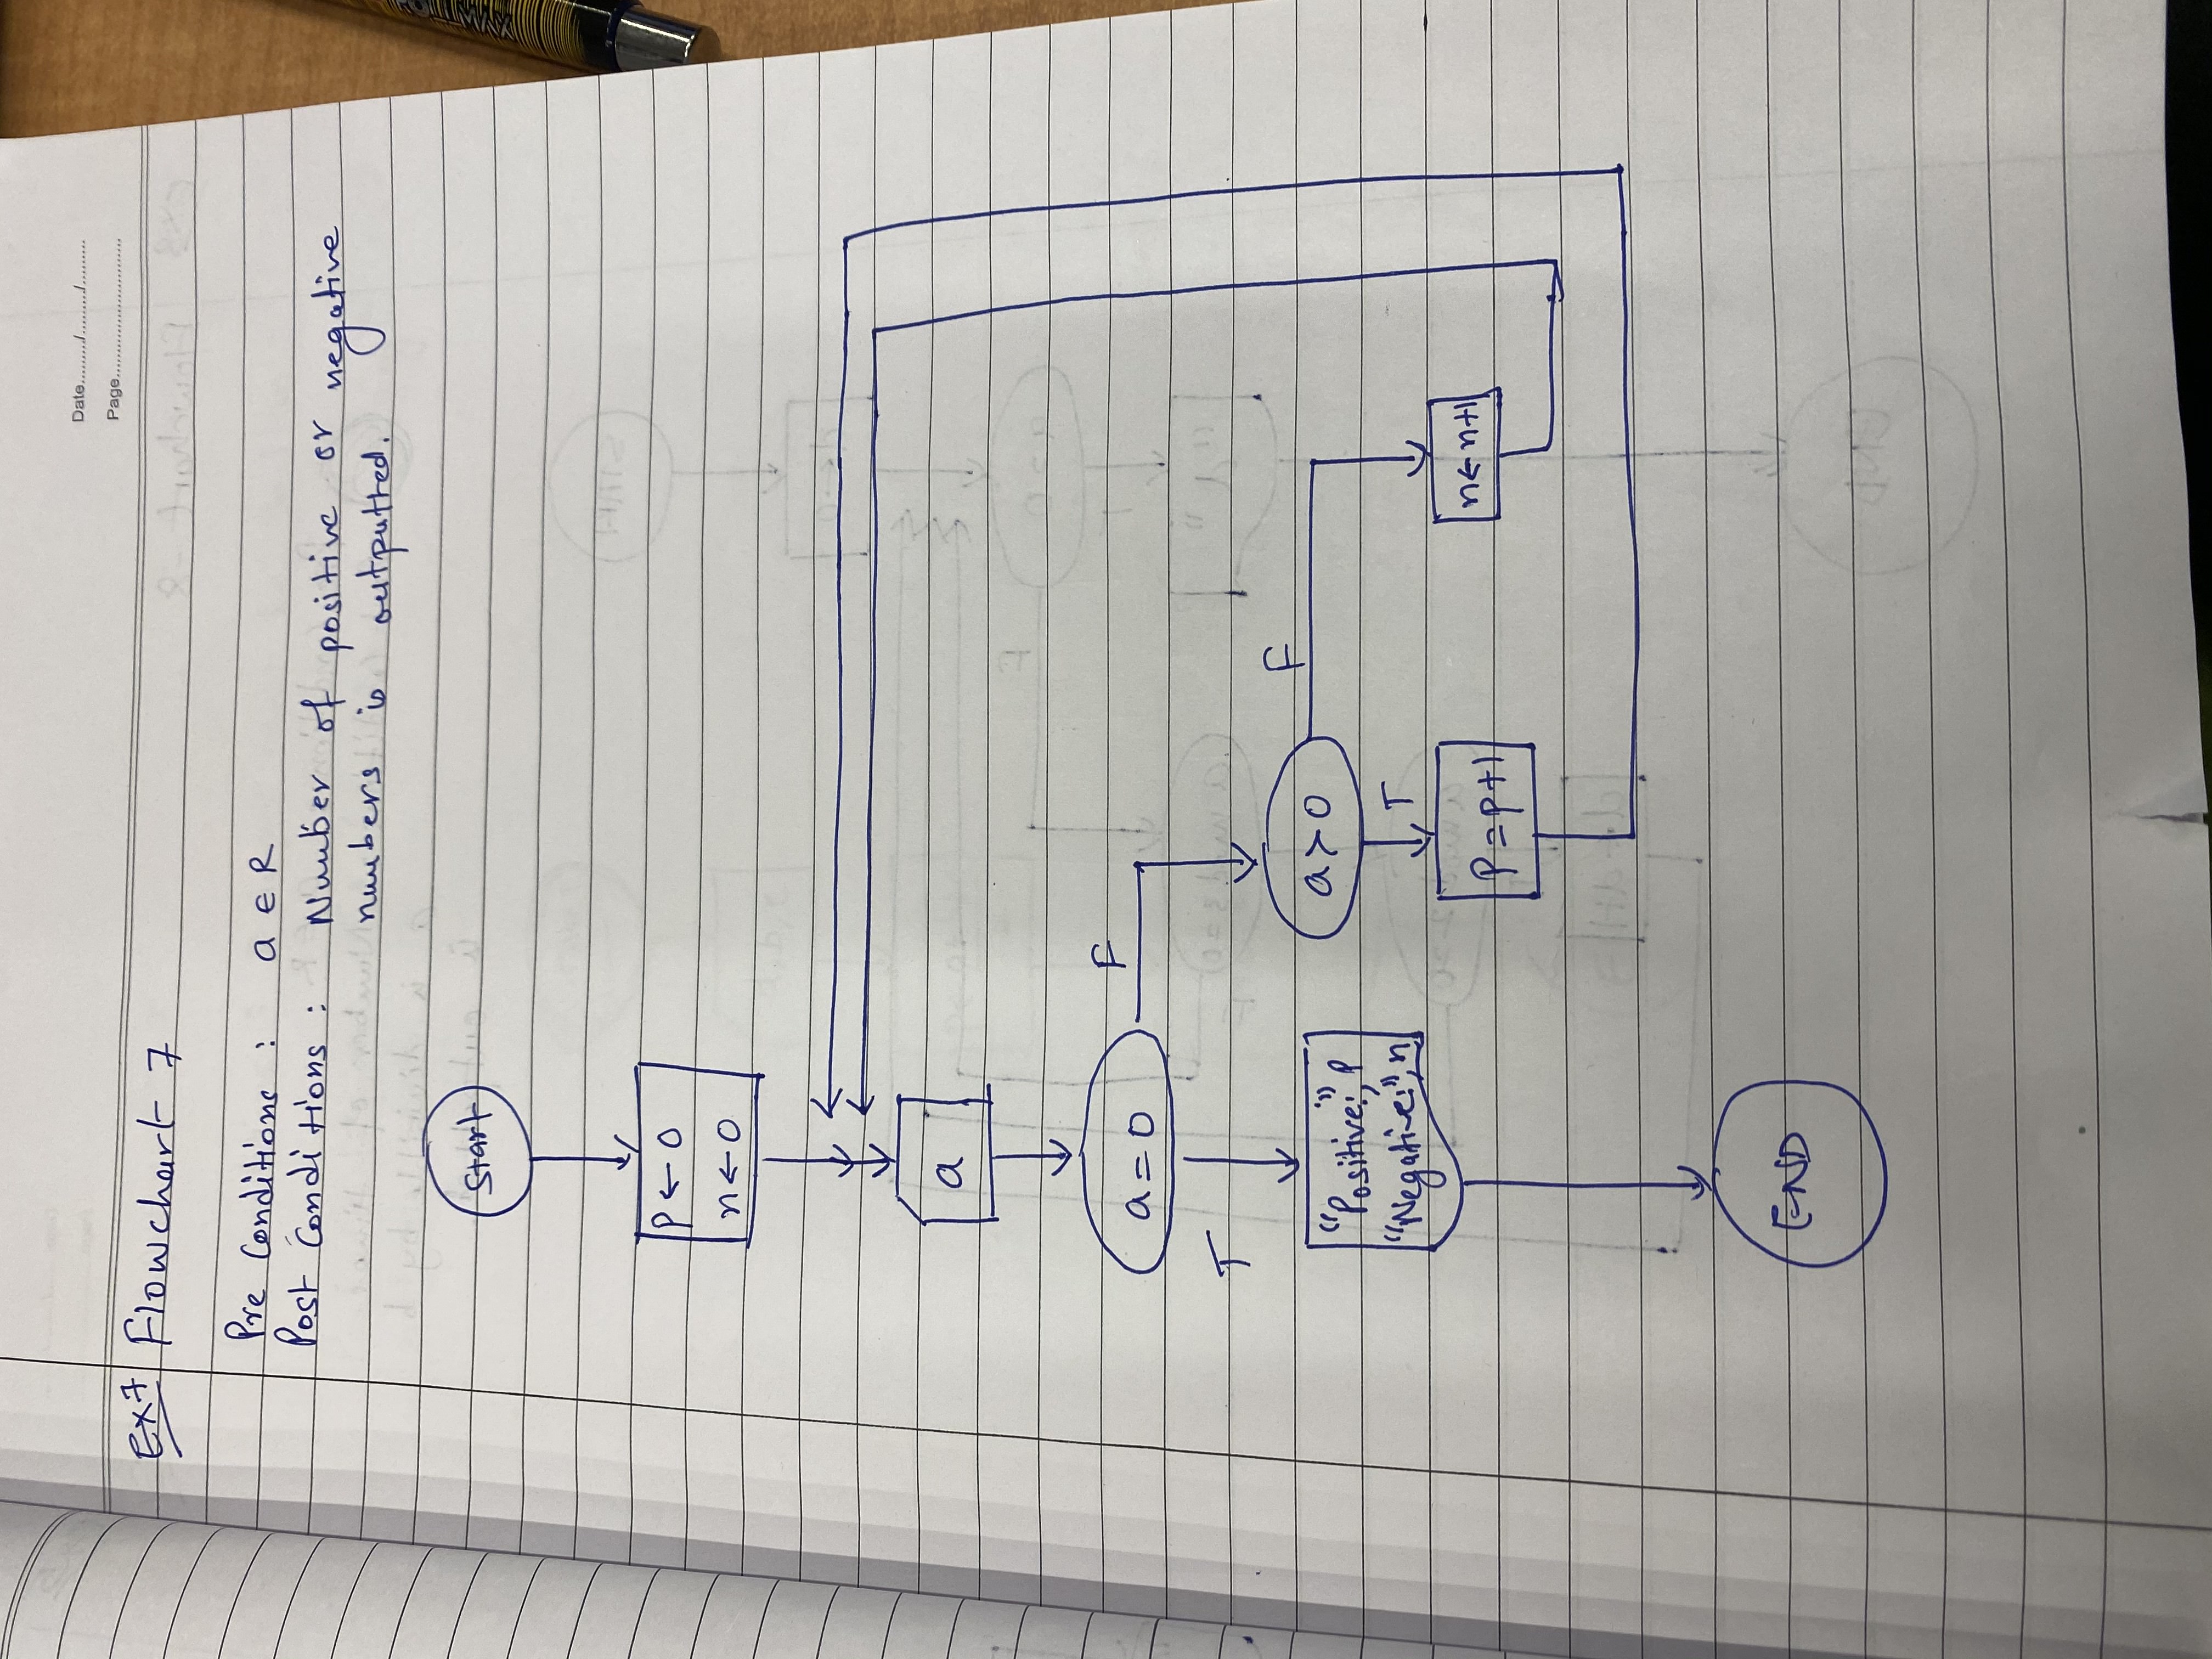 Date........./........./.........
Page............................
Ex7 Flowchart 7
Pre Conditions : a ∈ R
Post Conditions : Number of positive or negative
numbers is outputted.
Start
p ← 0
n ← 0
a
a = 0
F
T
a > 0
F
"Positive:", P
"Negative:", n
T
P = p+1
n ← n+1
END